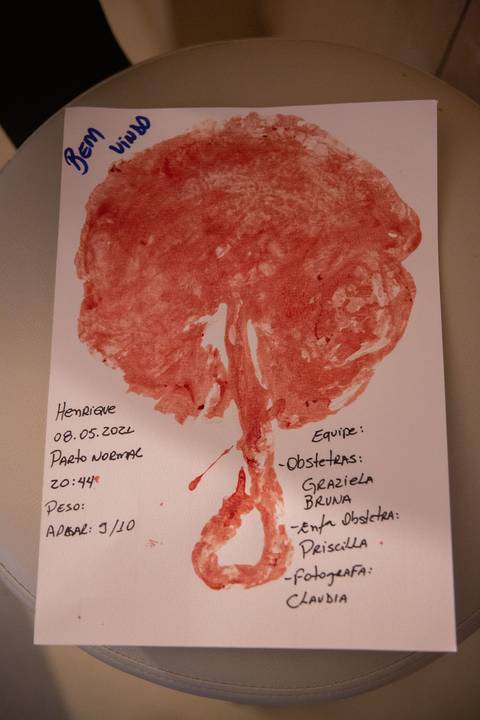 BEM
VINDO
Henrique
08.05.2021
Parto Normal
20:44
Peso:
APGAR: 9/10
Equipe:
-Obstetras:
Graziela
Bruna
-Enfa Obstetra:
Priscilla
-Fotografa:
Claudia